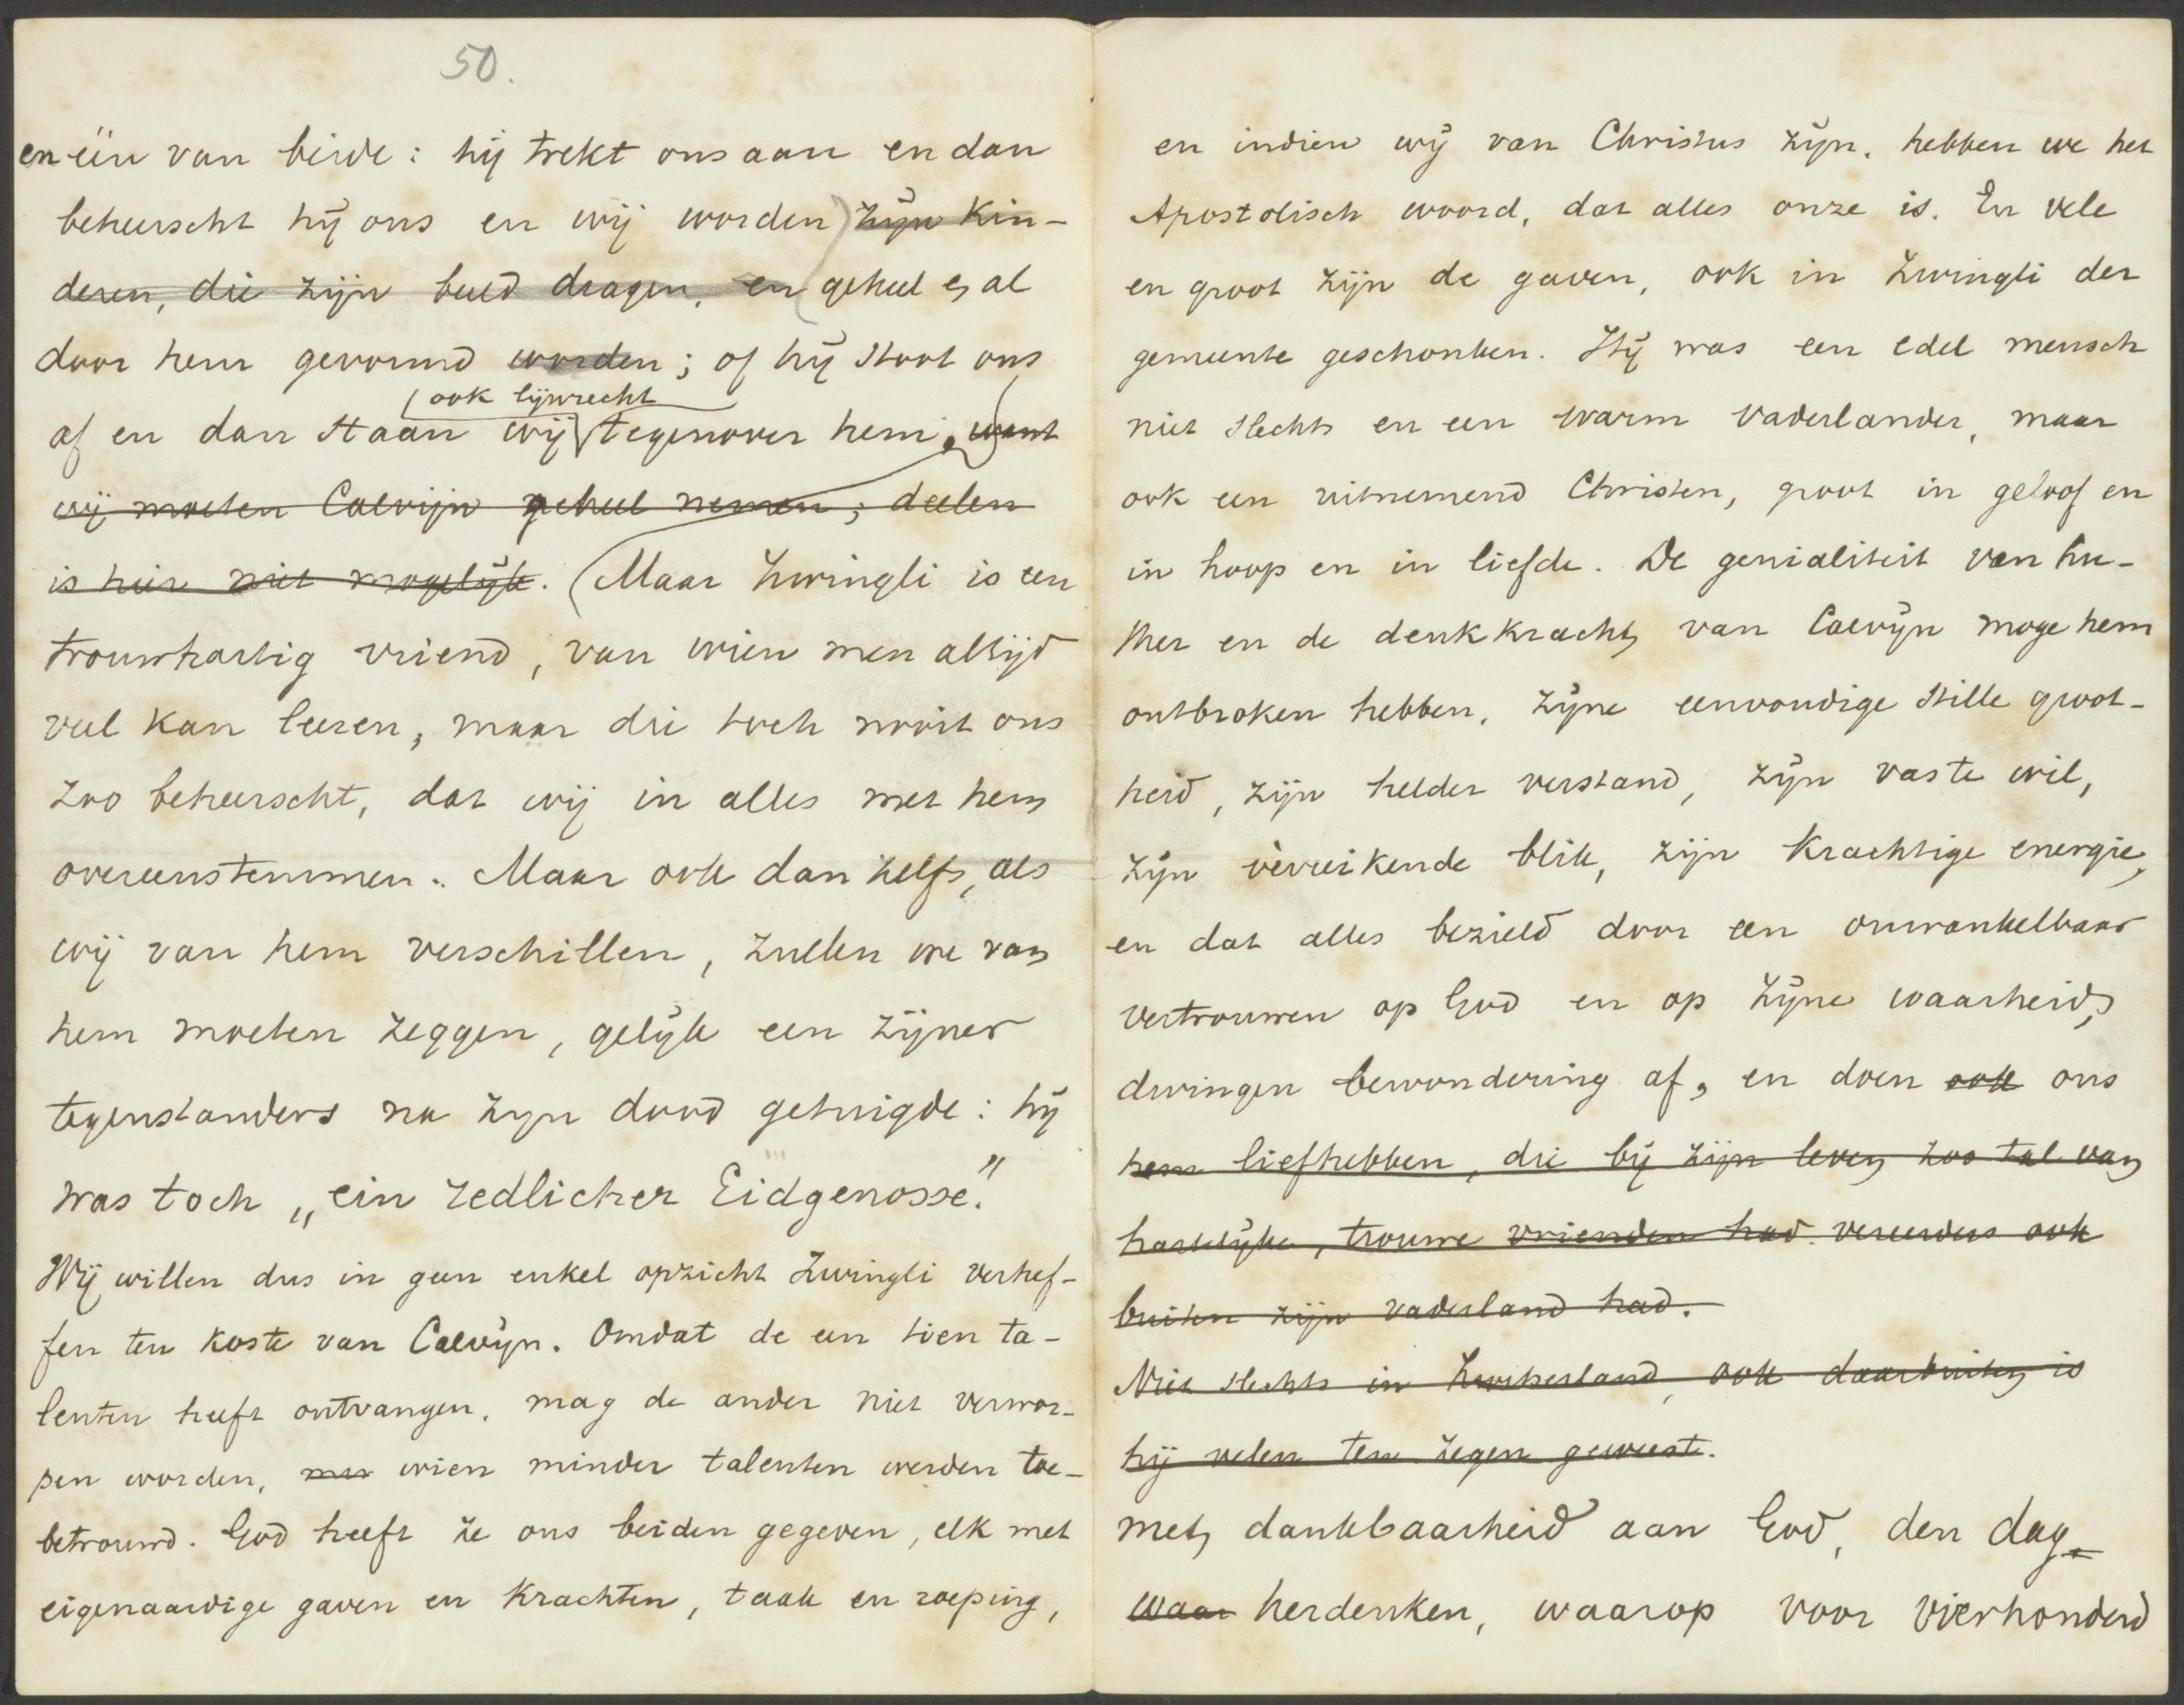 50.
en één van beide: hij trekt ons aan en dan
beheerscht hij ons en wij worden zijn kin-
deren, die zijn beeld dragen, en geheel en al
door hem gevormd worden; of hij stoot ons
ook lijnrecht
af en dan staan wij tegenover hem, want
wij moeten Calvijn geheel nemen; deelen
is hier niet mogelijk. Maar Zwingli is een
trouwhartig vriend, van wien men altijd
veel kan leeren, maar die toch nooit ons
zoo beheerscht, dat wij in alles met hem
overeenstemmen. Maar ook dan zelfs, als
wij van hem verschillen, zullen we van
hem moeten zeggen, gelijk een zijner
tegenstanders na zijn dood getuigde: hij
was toch „ein redlicher Eidgenosse."
Wij willen dus in geen enkel opzicht Zwingli verhef-
fen ten koste van Calvijn. Omdat de een tien ta-
lenten heeft ontvangen, mag de ander niet verwor-
pen worden, wien minder talenten werden toe-
betrouwd. God heeft ze ons beiden gegeven, elk met
eigenaardige gaven en krachten, taak en roeping,
en indien wij van Christus zijn, hebben we het
Apostolisch woord, dat alles onze is. En vele
en groot zijn de gaven, ook in Zwingli der
gemeente geschonken. Hij was een edel mensch
niet slechts en een warm vaderlander, maar
ook een uitnemend Christen, groot in geloof en
in hoop en in liefde. De genialiteit van Lu-
ther en de denkkracht van Calvijn moge hem
ontbroken hebben, zijne eenvoudige stille groot-
heid, zijn helder verstand, zijn vaste wil,
zijn vèrreikende blik, zijn krachtige energie,
en dat alles bezield door een onwankelbaar
vertrouwen op God en op zijne waarheid,
dwingen bewondering af, en doen ook ons
hem liefhebben, die bij zijn leven zoo tal van
hartelijke, trouwe vrienden had vereerders ook
buiten zijn vaderland had.
Niet slechts in Zwitserland, ook daarbuiten is
hij velen ten zegen geweest.
met dankbaarheid aan God, den dag
waar herdenken, waarop voor vierhonderd